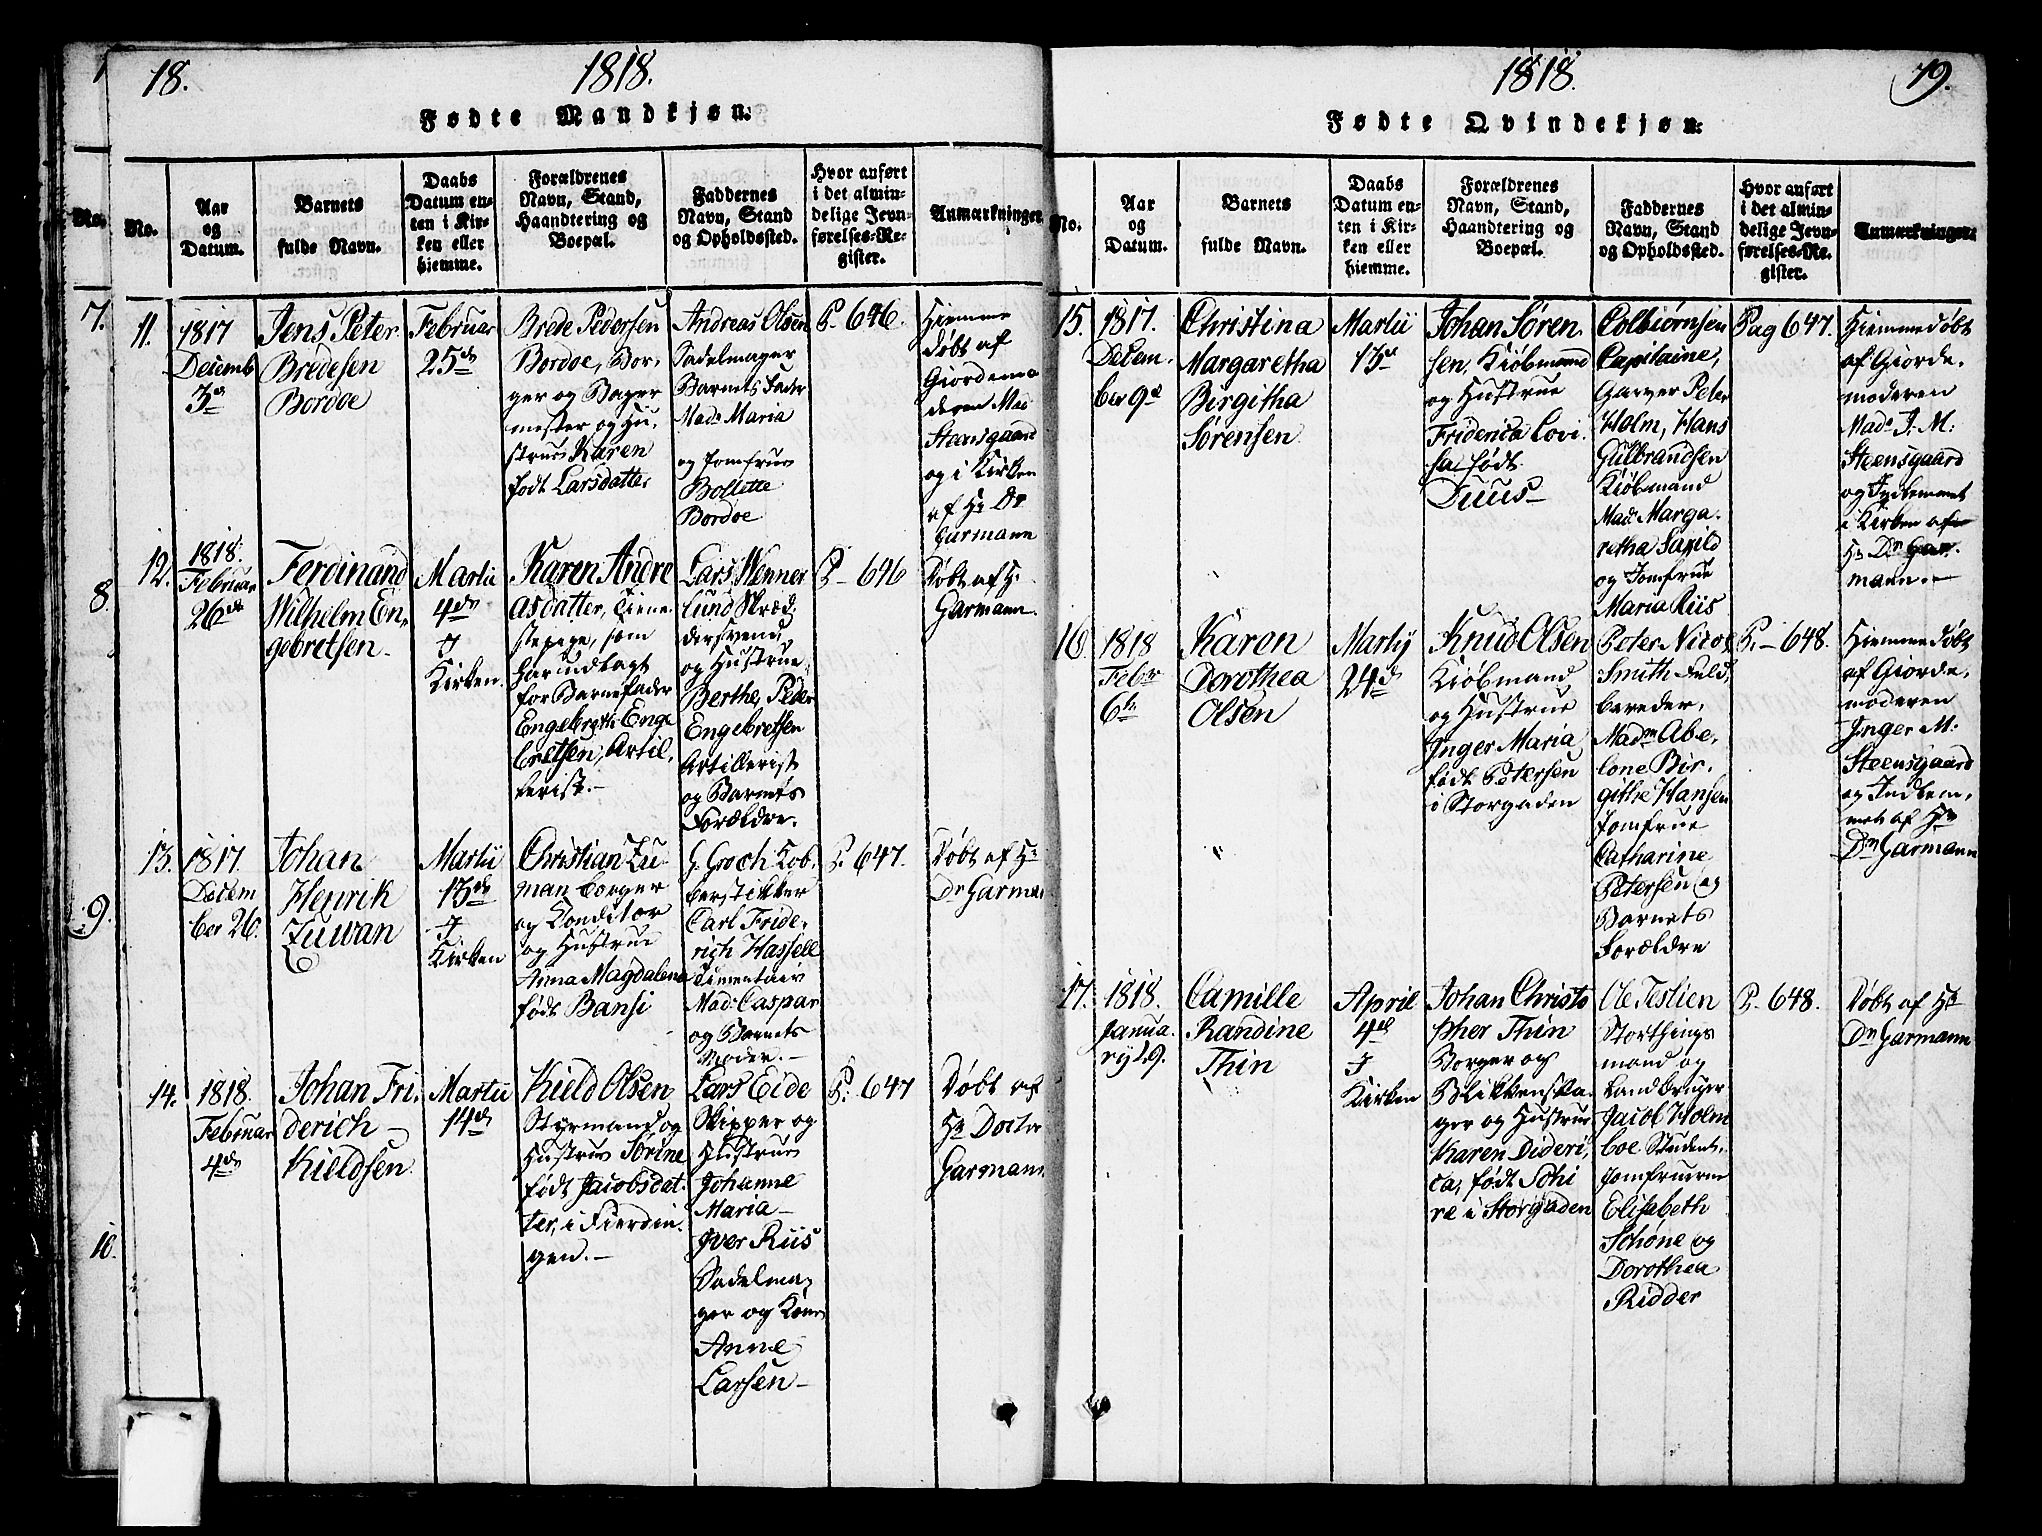 18.
1818.
Fødte Mandkjøn.
No.
Aar
og
Datum.
Barnets
fulde Navn.
Daabs
Datum en-
ten i Kir-
ken eller
hjemme.
Forældrenes
Navn, Stand,
Haandtering og
Boepæl.
Faddernes
Navn, Stand
og Opholdssted.
Hvor anført
i det almin-
delige Jevn-
førelses-Re-
gister.
Anmærkninger.
7.
8.
9.
10.
11.
1817
Decemb
3de
Jens Peter
Bredesen
Bordoe
Februar
25de
Brede Pedersen
Bordoe, Bor-
ger og Bager
mester og Hu-
strue Karen
født Larsdatter
Andreas Olsen
Sadelmager
Barnets Fader
Mad. Maria
og Jomfrue
Bollette
Bordoe
P. 646.
Hiemme
døbt af
Giordemo
deren Mad
Steensgaard
og i Kirken
af Hr Dr
Garmann
12.
1818.
Februar
26de
Ferdinand
Wilhelm En-
gebretsen
Martii
4de
I
Kirken.
Karen Andre
asdatter, Tiene-
stepige, som
har udlagt
for Barnefader
Engebrette Enge
bretsen, Artil-
lerist.
Lars Wenner
lund Skræd-
dersvend,
og Hustrue
Berthe, Peder
Engebretsen
Artillerist
og Barnets
Forældre.
P. 646
Døbt af Hr
Garmann.
13.
1817.
Decem
ber 26.
Johan
Henrik
Zuwan
Martii
13de
I
Kirken
Christian Zu-
man borger
og Conditor
og Hustrue
Anna Magdalena
født Bansi
G. Groch Kob-
berstikker
Carl Fride-
rich Hassell
Mad. Caspar
og Barnets
Moder.
P. 647.
Døbt af Hr
Dr Garman
14.
1818.
Februar
4de
Johan Fri-
derich
Kieldsen
Martii
14de
Kield Olsen
Styrmand og
Hustrue Sørine
født Jacobsdat-
ter, i Fierdin-
gen.
Lars Eide
Skipper og
Hustrue
Johanne
Maria
Iver Riis
Sadelma-
ger og Kone
Anne
Larsen
P. 647
Døbt af
Hr Doctor
Garmann.
1818.
19.
Fødte Qvindekjøn.
No.
Aar
og
Datum.
Barnets
fulde Navn.
Daabs
Datum en-
ten i Kir-
ken eller
hjemme.
Forældrenes
Navn, Stand,
Haandtering og
Boepæl.
Faddernes
Navn, Stand
og Opholdssted.
Hvor anført
i det almin-
delige Jevn-
førelses-Re-
gister.
Anmærkninger.
15.
1817.
Decem-
ber 9de
Christina
Margaretha
Birgitha
Sørensen
Martii
13de
Johan Søren-
sen, Kiøbmand
og Hustrue
Friderica Lovi-
sa født
Duus
Colbiørnsen
Capitaine,
Garver Peter
Holm, Hans
Gulbrandsen
Kiøbmand
Mad. Marga-
retha Saxild
og Jomfrue
Maria Riis
Pag 647.
Hiemmedøbt
af Giorde-
moderen
Mad. I. M.
Steensgaard
og Indlemmet
i Kirken af
Hr Dr Gar-
mann.
16.
1818
Febr
6te
Karen
Dorothea
Olsen
Martij
24de
Knud Olsen
Kiøbmand
og Hustrue
Inger Maria
født Petersen
i Storgaden
Peter Nicol.
Smith Feld-
bereder,
Madm Abe-
lone Bir-
githe Hansen
Jomfrue
Catharine
Petersen og
Barnets
Forældre
P. 648.
Hiemmedøbt
af Giorde-
moderen
Inger M.
Steensgaard
og Indlem-
met af Hr
Dr Garmann
17.
1818.
Janua-
rij 29.
Camille
Randine
Thin
April
4de
I
Kirken
Johan Christo
pher Thin
Borger og
Blikkenska-
ger og Hustrue
Karen Dideri-
ca, født Schi
re i Storgaden
Ole Testien
Storthings
mand og
Landbruger
Jacob Holm
boe Student,
Jomfruerne
Elisabeth
Schøne og
Dorothea
Ridder
P. 648.
Døbt af Hr
Dr Garmann